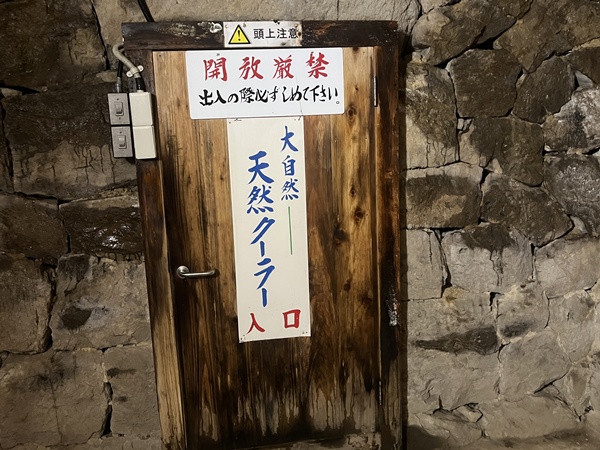 頭上注意
開放厳禁
出入の際必ずしめて下さい。
大自然
天然クーラー
入口